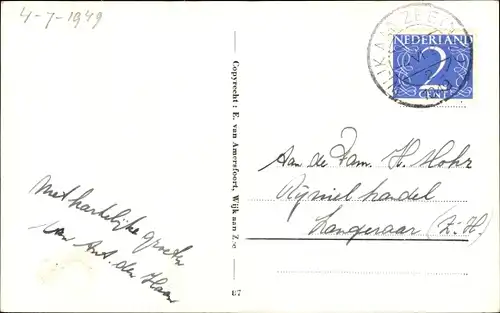 4-7-1949
NEDERLAND
2
CENT
WIJK AAN ZEE
Copyrecht : E. van Amersfoort, Wijk aan Zee
Aan de Fam. H. Mohr
Rijwielhandel
Langeraar (Z-H.)
Met hartelijke groeten
van Ant. den Haan
E7